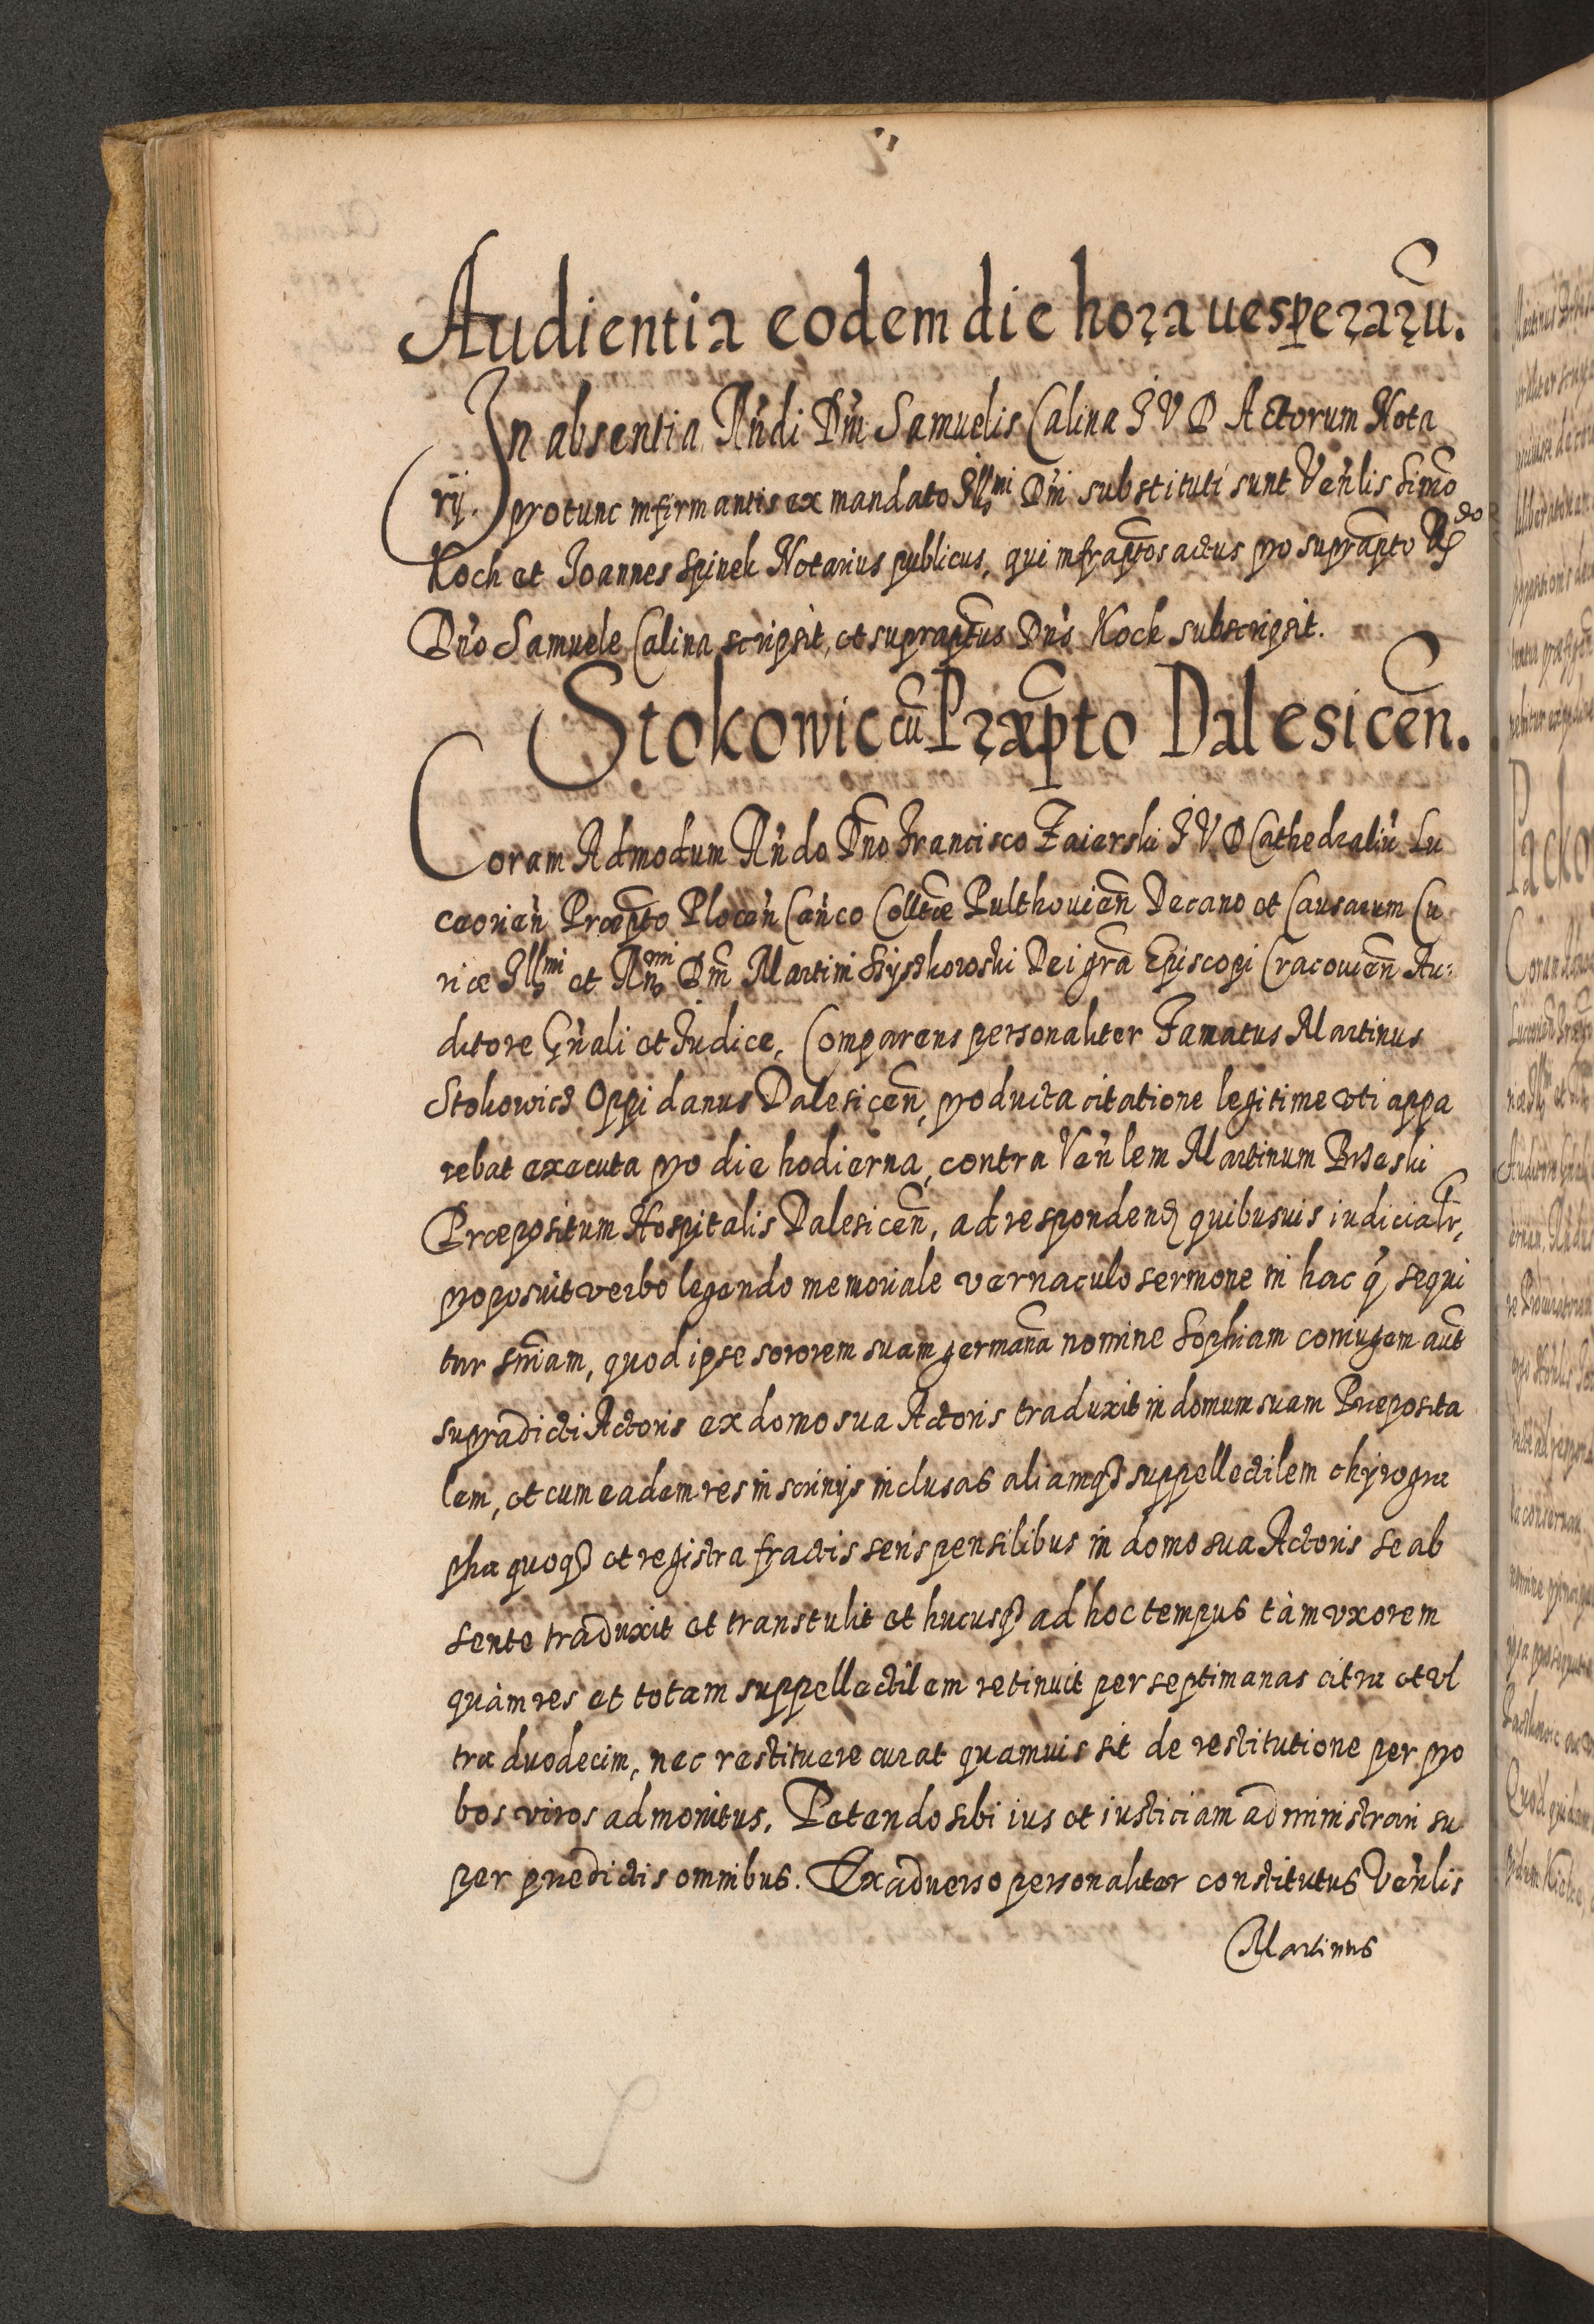 Audientia eodem die hora uesperarū.
In absentia Rńdi Dńi Samuelis Calina I V D Actorum Nota
rij. protunc infirmantis ex mandato Illmi Dńi substituti sunt Veńlis Simo
Koch et Joannes Spinek Notarius publicus, qui infraptos actus pro suprapto Rdo
Dńo Samuele Calina scripsit, et supraptus Dńs Koch subscripsit.
Stokowic cū Præpto Dalesicen̄.
Coram Admodum Rńdo Dńo Francisco Zaierski I V D Cathedraliū Lu
ceorień Præpto Ploceń Cańco Colltæ Pulthouień Decano et Causarum Cu
riæ Illmi et Rnmi Dńi Martini Szyszkowski Dei gra Episcopi Cracouień Au:
ditore Gńali et Judice, Comparens personaliter Famatus Martinus
Stokowicz Oppidanus Dalesiceń, producta citatione legitime vti appa
rebat executa pro die hodierna, contra Veńlem Martinum Brzeski
Præpositum Hospitalis Dalesiceń, ad respondend quibusuis iudicialr,
proposuit verbo legendo memoriale vernaculo sermone in hac q̨ sequi
tur sńiam, quod ipse sororem suam germanā nomine Sophiam coniugem aūt
supradicti Actoris ex domo sua Actoris traduxit in domum suam Præposita
lem, et cum eadem res in scrinijs inclusas aliamqꝫ suppellectilem chyrogra
pha quoqꝫ et registra fractis seris pensilibus in domo sua Actoris se ab
sente traduxit et transtulit et hucusqꝫ ad hoc tempus tàm vxorem
quàm res et totam suppellectilem retinuit per septimanas citra et vl
tra duodecim, nec restituere curat quamuis sit de restitutione per pro
bos viros admonitus. Petendo sibi ius et iusticiam administrari su
per prædictis omnibus. Ex aduerso personaliter constitutus Veńlis
Martinus